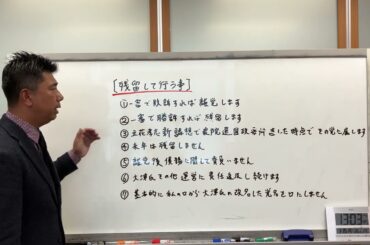 [残留して行う事]
①一審で敗訴すれば離党します
②一審で勝訴すれば残留します
③立花孝志 新 で衆院選 した時点でその党に属します
④永年は残留しません
⑤離党後債務に関して負いません
⑥大津氏その他運営に責任追及し続けます
⑦基本的に私の口から大津氏の改名した党名を口にしません